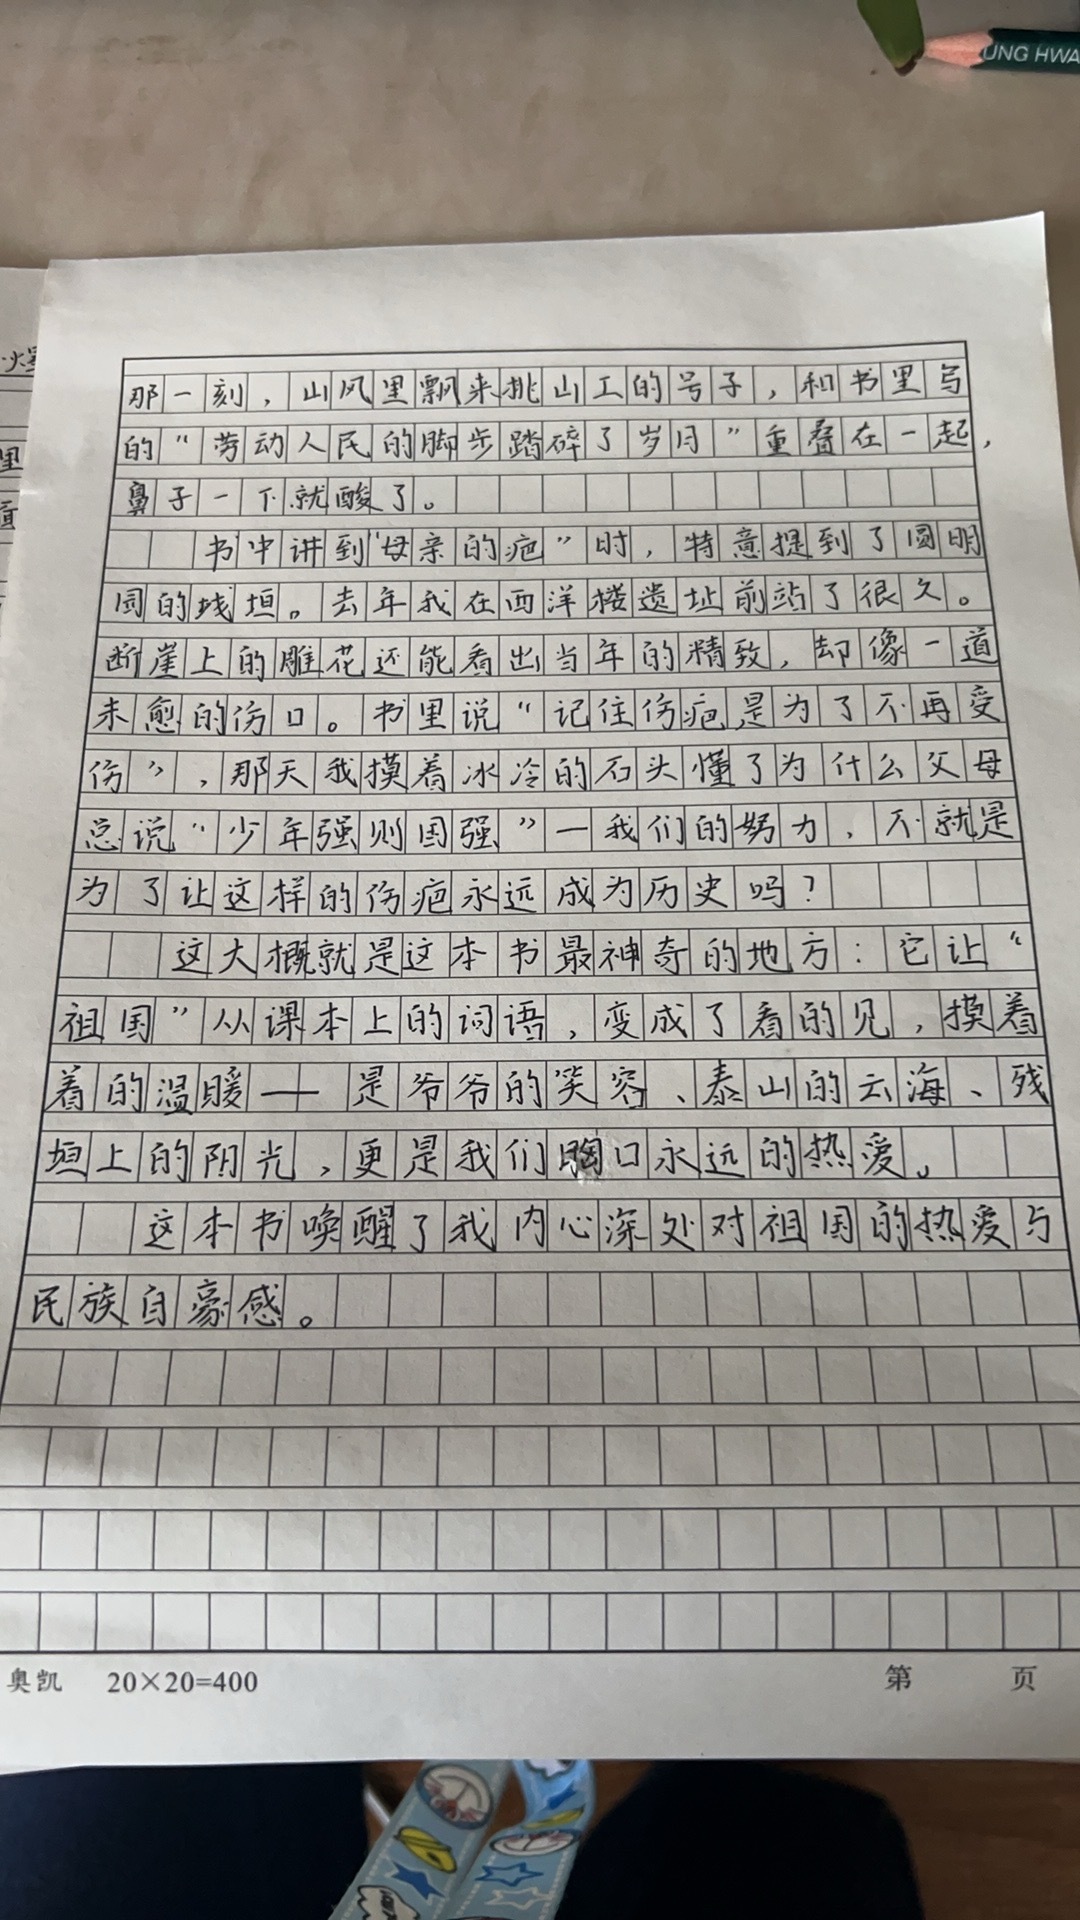 UNG HWA
那一刻，山风里飘来挑山工的号子，和书里写
的“劳动人民的脚步踏碎了岁月”重叠在一起，
鼻子一下就酸了。
书中讲到“母亲的疤”时，特意提到了圆明
园的残垣。去年我在西洋楼遗址前站了很久。
断崖上的雕花还能看出当年的精致，却像一道
未愈的伤口。书里说“记住伤疤是为了不再受
伤”，那天我摸着冰冷的石头懂了为什么父母
总说“少年强则国强”—我们的努力，不就是
为了让这样的伤疤永远成为历史吗？
这大概就是这本书最神奇的地方：它让“
祖国”从课本上的词语，变成了看的见，摸着
着的温暖——是爷爷的笑容、泰山的云海、残
垣上的阳光，更是我们胸口永远的热爱。
这本书唤醒了我内心深处对祖国的热爱与
民族自豪感。
奥凯 20×20=400 第 页